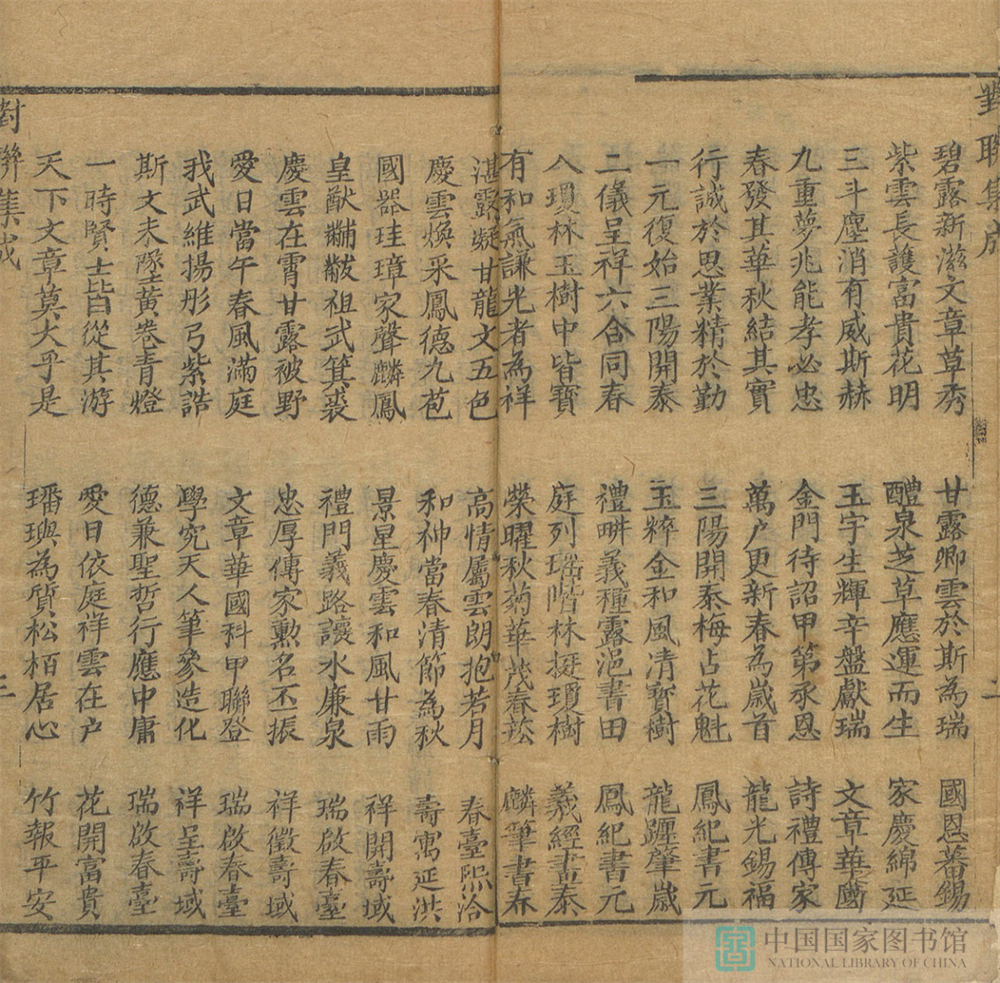 對聯集成
碧露新滋文章草秀 甘露卿雲於斯為瑞 國恩蕃錫
紫雲長護富貴花明 醴泉芝草應運而生 家慶綿延
三斗塵消有威斯赫 玉宇生輝辛盤獻瑞 文章華國
九重夢兆能孝必忠 金門待詔甲第承恩 詩禮傳家
春發其華秋結其實 萬户更新春為歲首 龍光錫福
行誠於思業精於勤 三陽開泰梅占花魁 鳳紀書元
一元復始三陽開泰 玉粹金和風清寶樹 龍躔肇歲
二儀呈祥六合同春 禮畊義種露浥書田 鳳紀書元
入瓊林玉樹中皆寶 庭列瑤階林挺瓊樹 羲經書泰
有和氣謙光者為祥 榮曜秋菊華茂春菘 麟筆書春
湛露凝甘龍文五色 高情屬雲朗抱若月 春臺熙洽
慶雲煥采鳳德九苞 和神當春清節為秋 壽寓延洪
國器珪璋家聲麟鳳 景星慶雲和風甘雨 祥開壽域
皇猷黼黻祖武箕裘 禮門義路讓水廉泉 瑞啟春臺
慶雲在霄甘露被野 忠厚傳家勲名丕振 祥徵壽域
愛日當午春風滿庭 文章華國科甲聯登 瑞啟春臺
我武維揚彤弓紫誥 學究天人筆參造化 祥呈壽域
斯文未墜黃卷青燈 德兼聖哲行應中庸 瑞啟春臺
一時賢士皆從其游 愛日依庭祥雲在户 花開富貴
天下文章莫大乎是 璠璵為質松栢居心 竹報平安
對聯集成
三
中国国家图书馆
NATIONAL LIBRARY OF CHINA